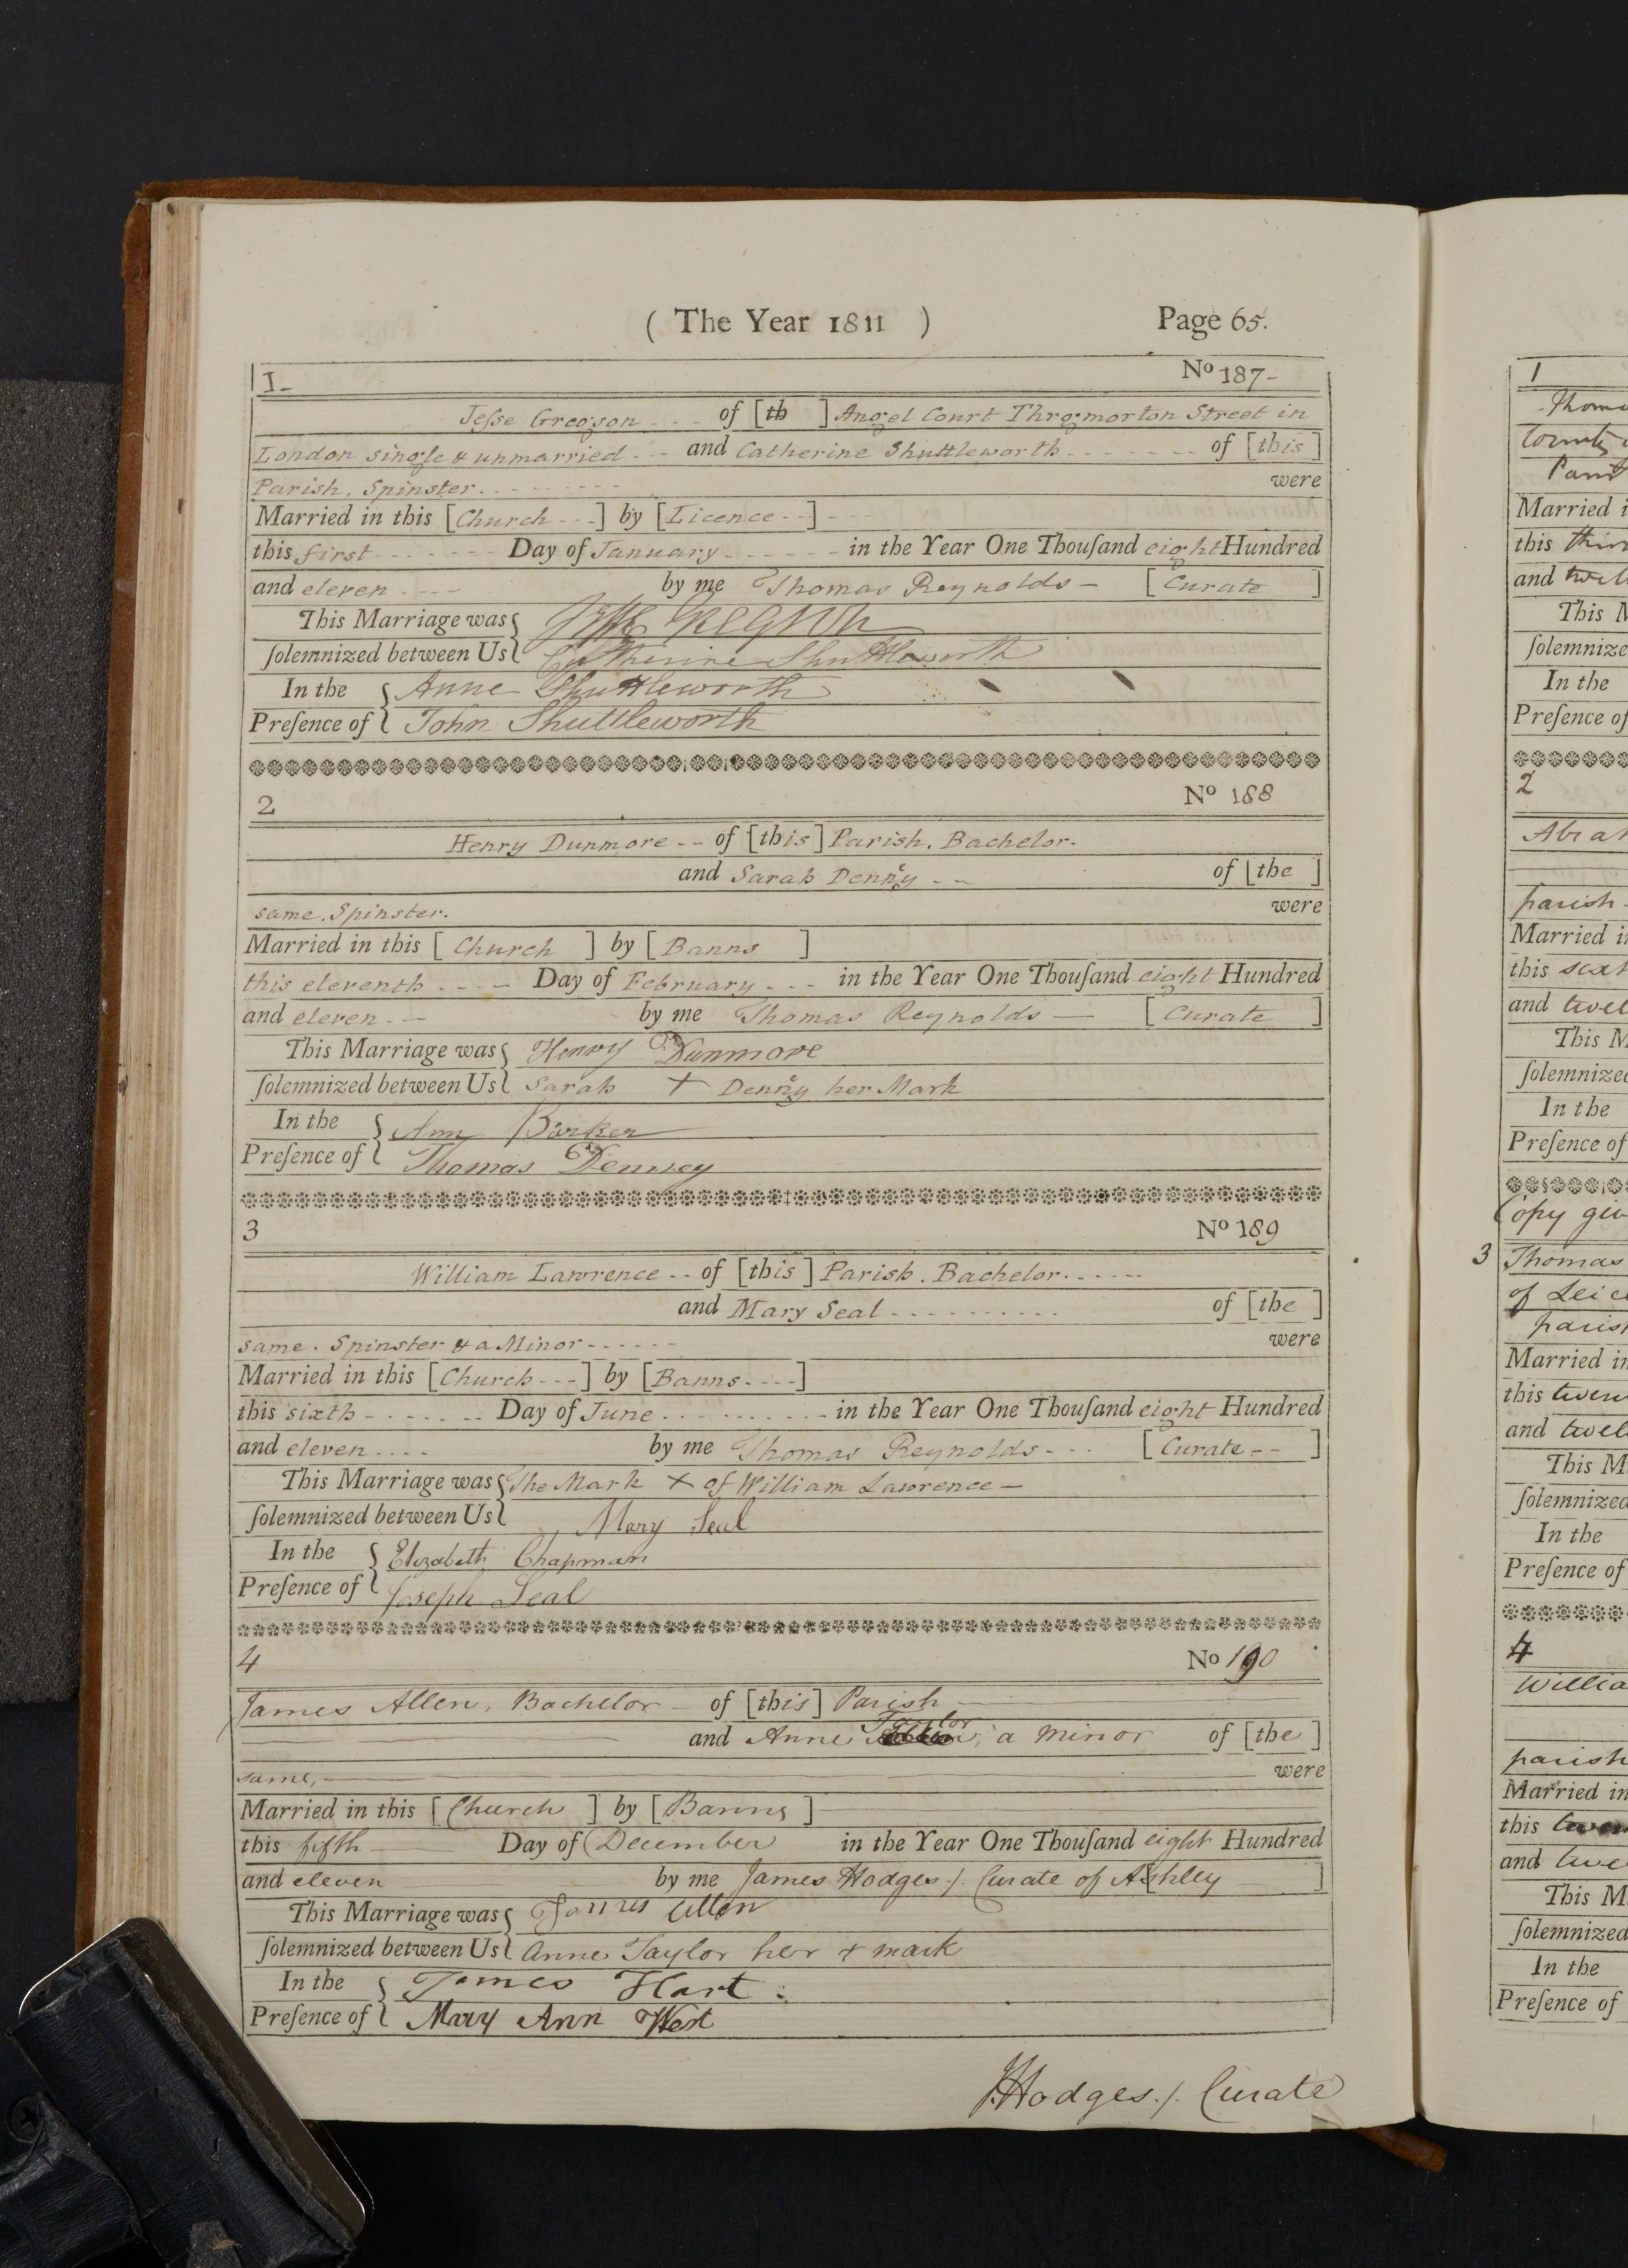 ( The Year 1811 ) Page 65.
1- No 187-
Jeſse Gregson - - - of [th ] Angel Court Throgmorton Street in
London single & unmarried - - - and Catherine Shuttleworth - - - - - - - of [this]
Parish, Spinster - - - - - - - - - were
Married in this [Church - - -] by [Licence - -] - -
this first - - - - - - - Day of January - - - - - - in the Year One Thouſand eight Hundred
and eleven - - - - by me Thomas Reynolds - [Curate ]
This Marriage was
ſolemnized between Us { Catherine Shuttleworth
In the { Anne Shuttleworth
Preſence of { John Shuttleworth
2 No 188
Henry Dunmore - - of [this] Parish. Bachelor.
and Sarah Denny - - of [the ]
same. Spinster. were
Married in this [Church ] by [Banns ]
this eleventh - - - - Day of February - - - in the Year One Thouſand eight Hundred
and eleven - - by me Thomas Reynolds - [Curate ]
This Marriage was { Henry Dunmore
ſolemnized between Us { Sarah + Denny her Mark
In the { Ann Barker
Preſence of { Thomas Denney
3 No 189
William Lawrence - - of [this] Parish. Bachelor. - - - - -
and Mary Seal - - - - - - - - - - of [the ]
same. Spinster & a Minor - - - - - - were
Married in this [Church - - -] by [Banns - - - -]
this sixth - - - - - - - Day of June - - - - - - - - - - in the Year One Thouſand eight Hundred
and eleven - - - - by me Thomas Reynolds - - - [Curate - - ]
This Marriage was { The Mark X of William Lawrence -
ſolemnized between Us { Mary Seal
In the { Elizabeth Chapman
Preſence of { Joseph Seal
4 No 190
James Allen, Bachelor - of [this] Parish -
Taylor
and Anne , a minor of [the ]
same, were
Married in this [Church ] by [Banns ]
this fifth Day of December in the Year One Thouſand eight Hundred
and eleven by me James Hodges /. Curate of Ashley ]
This Marriage was { James Allen
ſolemnized between Us { Anne Taylor her + mark
In the { James Hart :
Preſence of { Mary Ann West
J. Hodges /. Curate
1
Thoma
County
Pari
Married i
this thir
and twel
This M
ſolemnize
In the
Preſence of
2
Abrah
parish
Married i
this sixt
and twel
This M
ſolemnized
In the
Preſence of
Copy giv
3 Thomas
of Leice
parish
Married in
this twen
and twel
This M
ſolemnized
In the
Preſence of
4
Willia
parish
Married in
this
and twe
This M
ſolemnized
In the
Preſence of